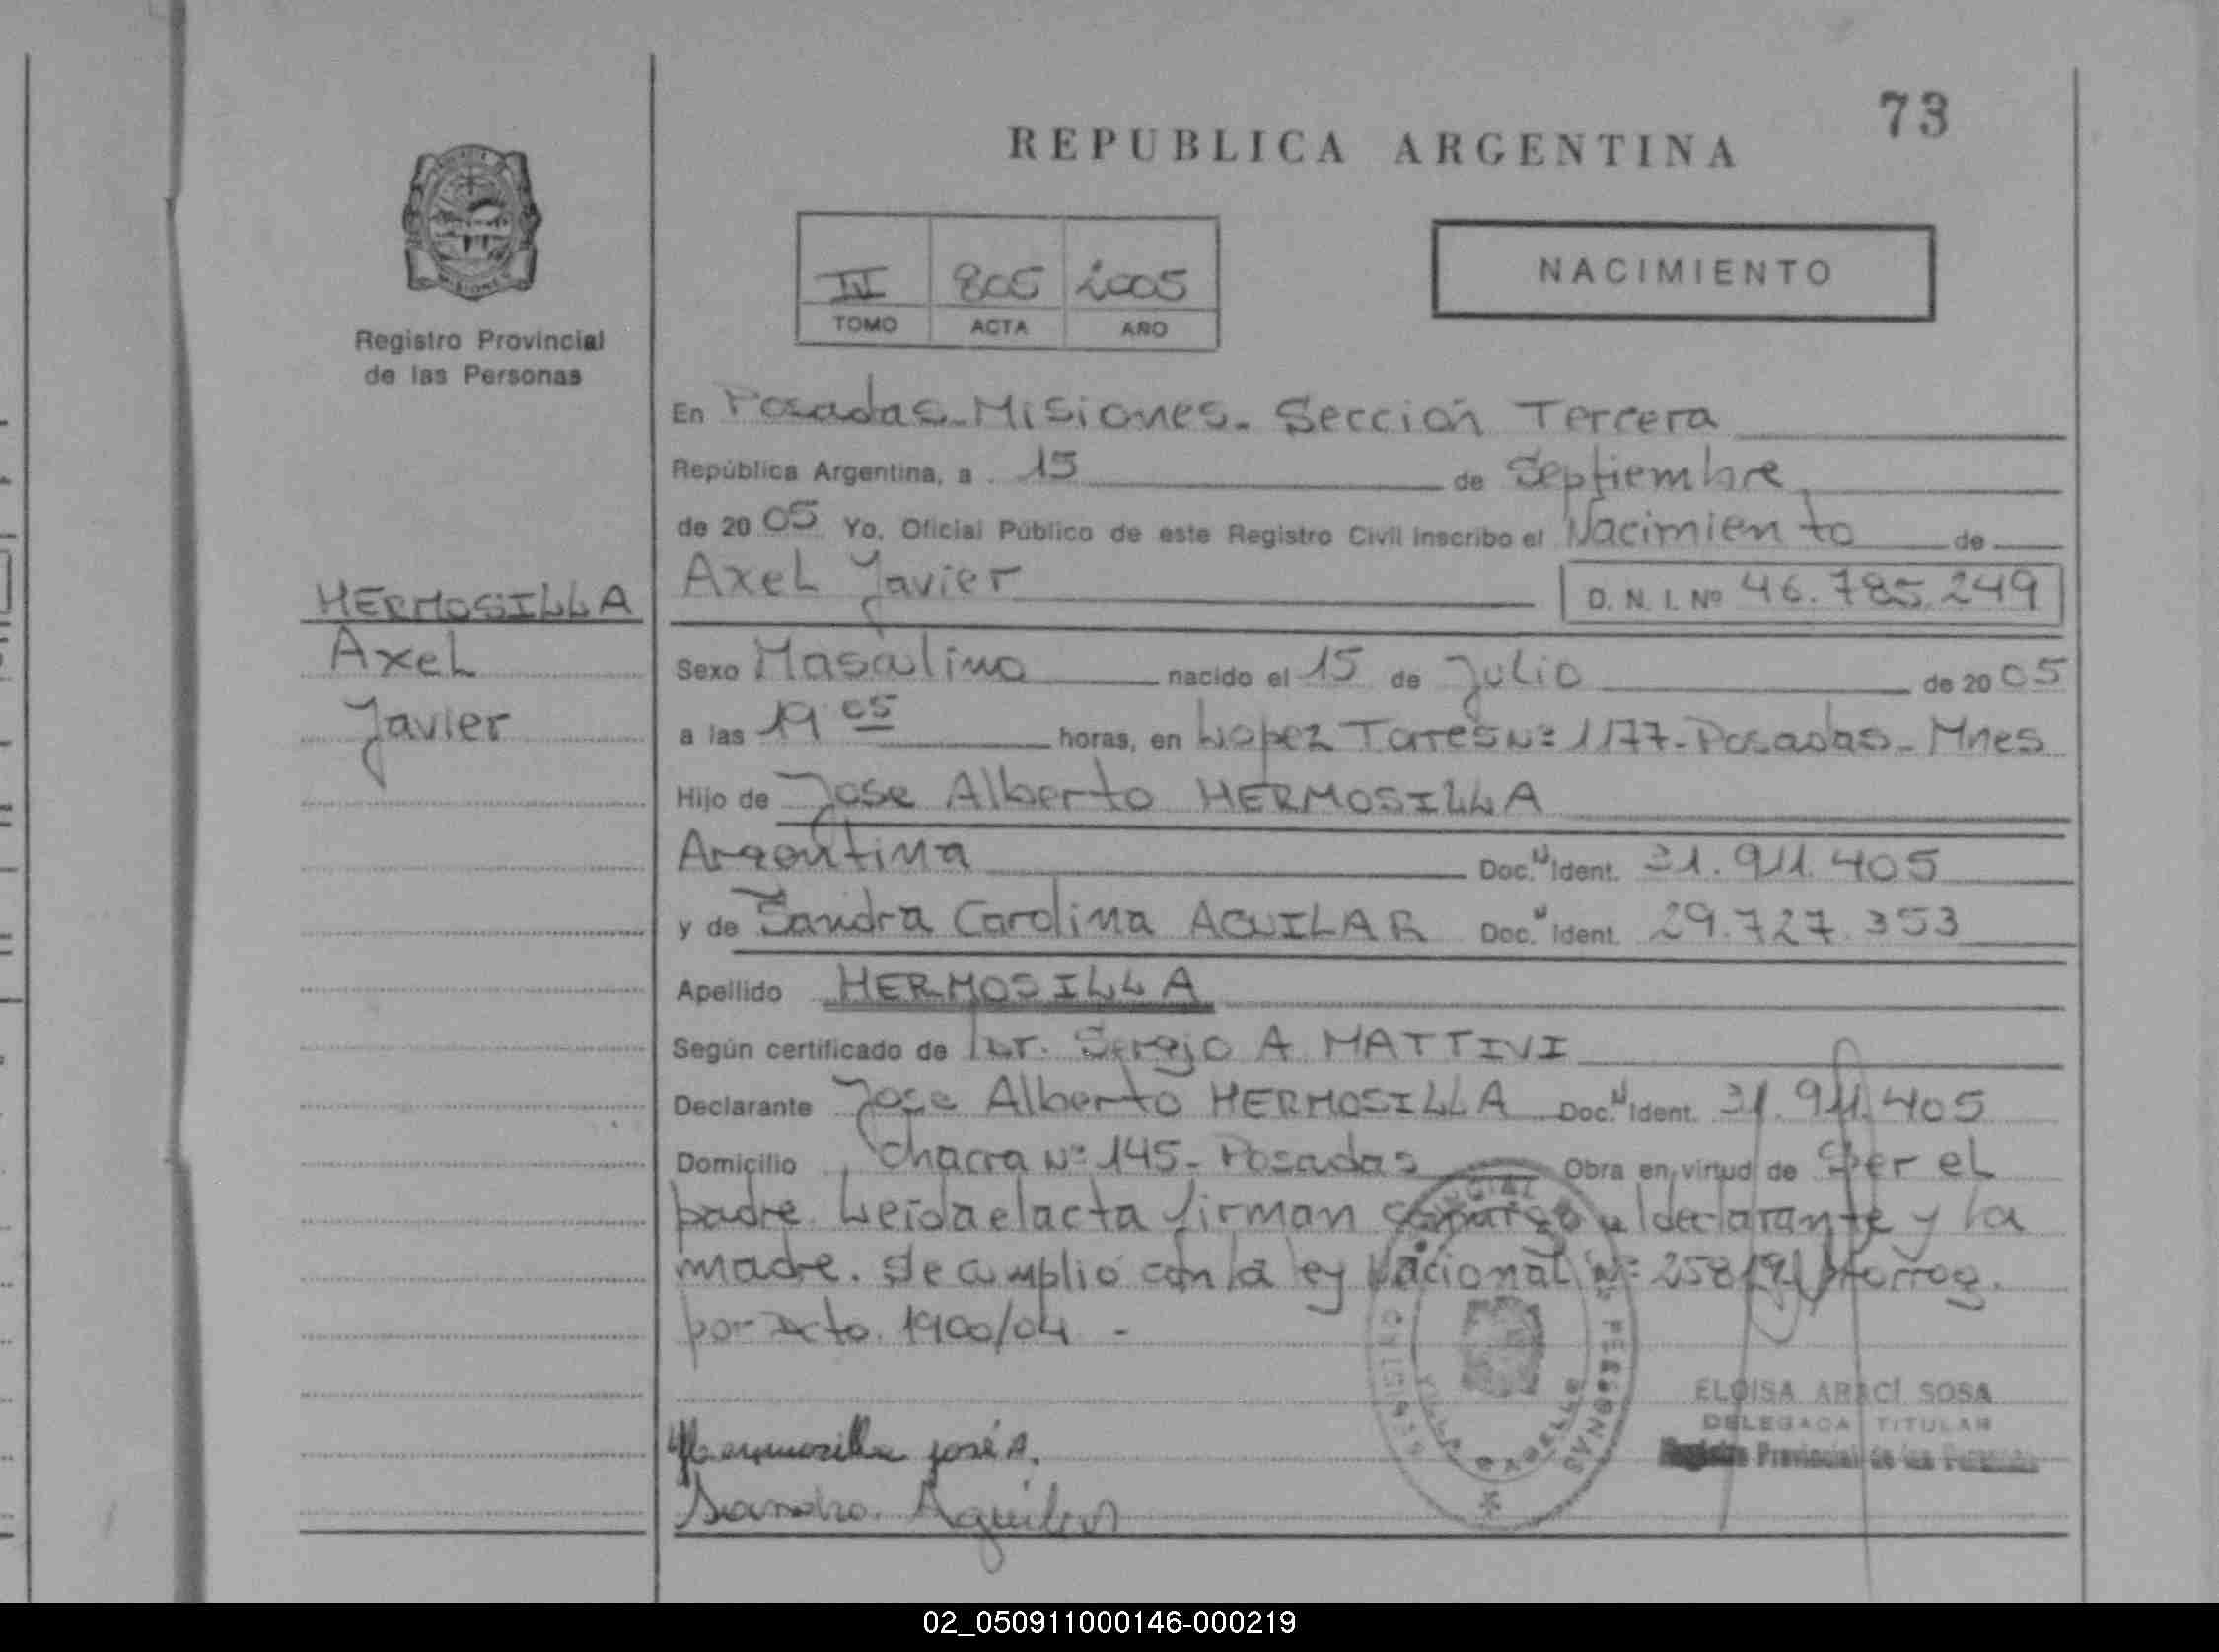 73
REPUBLICA ARGENTINA
TOMO 805 ACTA 2005 AÑO
NACIMIENTO
Registro Provincial
de las Personas
En Posadas-Misiones. Sección Tercera
República Argentina, a 15 de Septiembre
de 2005 Yo, Oficial Público de este Registro Civil inscribo el Nacimiento de
Axel Javier D. N. I. Nº 46.785.249
HERMOSILLA
Axel
Javier
Sexo Masculino nacido el 15 de Julio de 2005
a las 19 05 horas, en Lopez Torres Nº 1177-Posadas-Mnes
Hijo de Jose Alberto HERMOSILLA
Argentina Doc. N Ident. 31.911.405
y de Sandra Carolina AGUILAR Doc. N Ident. 29.727.353
Apellido HERMOSILLA
Según certificado de Sergio A MATTIVI
Declarante Jose Alberto HERMOSILLA Doc. N Ident. 31.911.405
Domicilio Chacra Nº 145- Posadas Obra en virtud de Ser el
padre. Leida el acta firman el declarante y la
madre. Se cumplió con la ley Nacional Nº 25819
por Dcto. 1900/04 -
ELOISA ARACÍ SOSA
DELEGADA TITULAR
Registro Provincial de las Personas
Hermosilla josé A.
Sandra. Aguilar
02_050911000146-000219